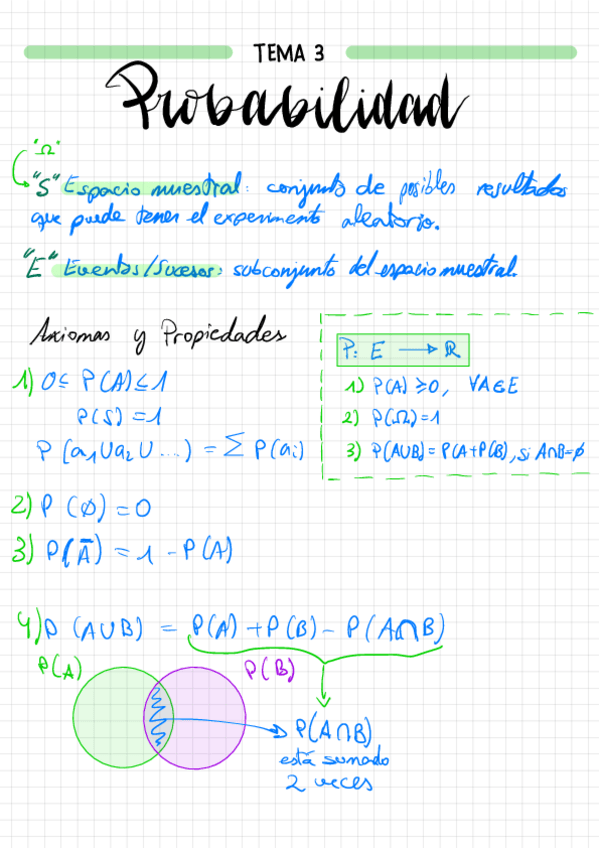 TEMA 3
Probabilidad
"Ω"
"S" Espacio muestral: conjunto de posibles resultados
que puede tener el experimento aleatorio.
"E" Eventos/Sucesos: subconjunto del espacio muestral.
Axiomas y Propiedades
1) 0 ≤ P(A) ≤ 1
P(S) = 1
P (a₁ ∪ a₂ ∪ ...) = ∑ P(aᵢ)
2) P (∅) = 0
3) P(Ā) = 1 - P(A)
P: E → ℝ
1) P(A) ≥ 0, ∀A ∈ E
2) P(Ω) = 1
3) P(A∪B) = P(A + P(B), si A∩B = ∅
4) P (A∪B) = P(A) + P(B) - P(A∩B)
P(A)
P(B)
P(A∩B)
está sumado
2 veces